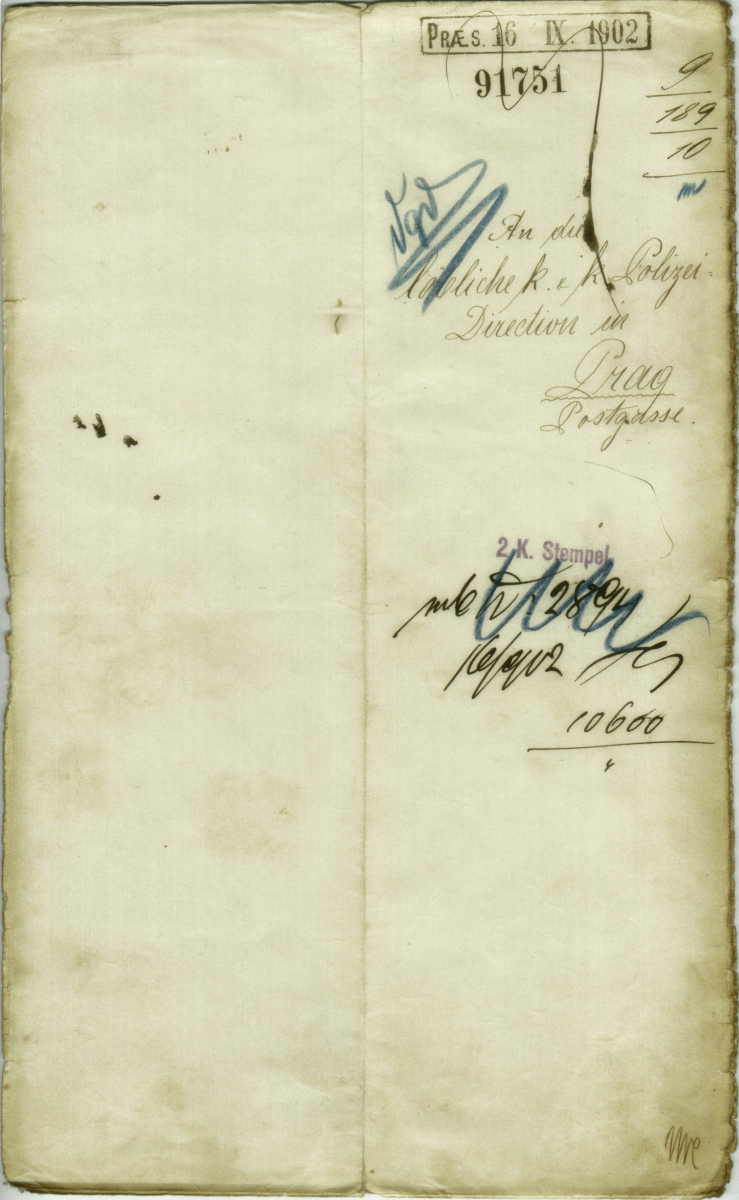 PRÆS. 16 IX. 1902
91751
9
189
10
An die
löbliche k. k. Polizei-
Direction in
Prag
Postgasse.
2 K. Stempel
2894
10600